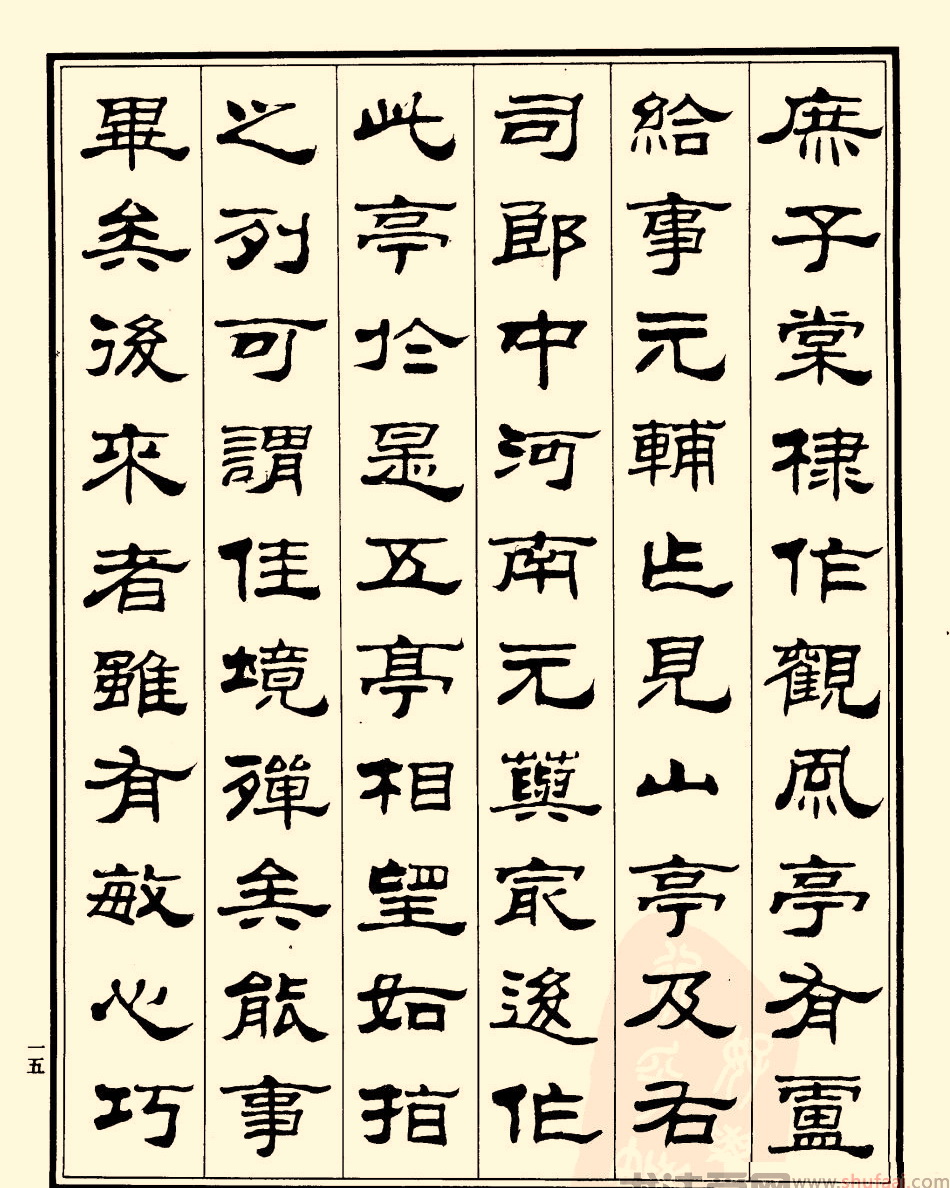 庶子棠棣作觀風亭有盧
給事元輔作見山亭及右
司郎中河南元藇冣後作
此亭於是五亭相望如指
之列可謂佳境殫矣能事
畢矣後來者雖有敏心巧
一五